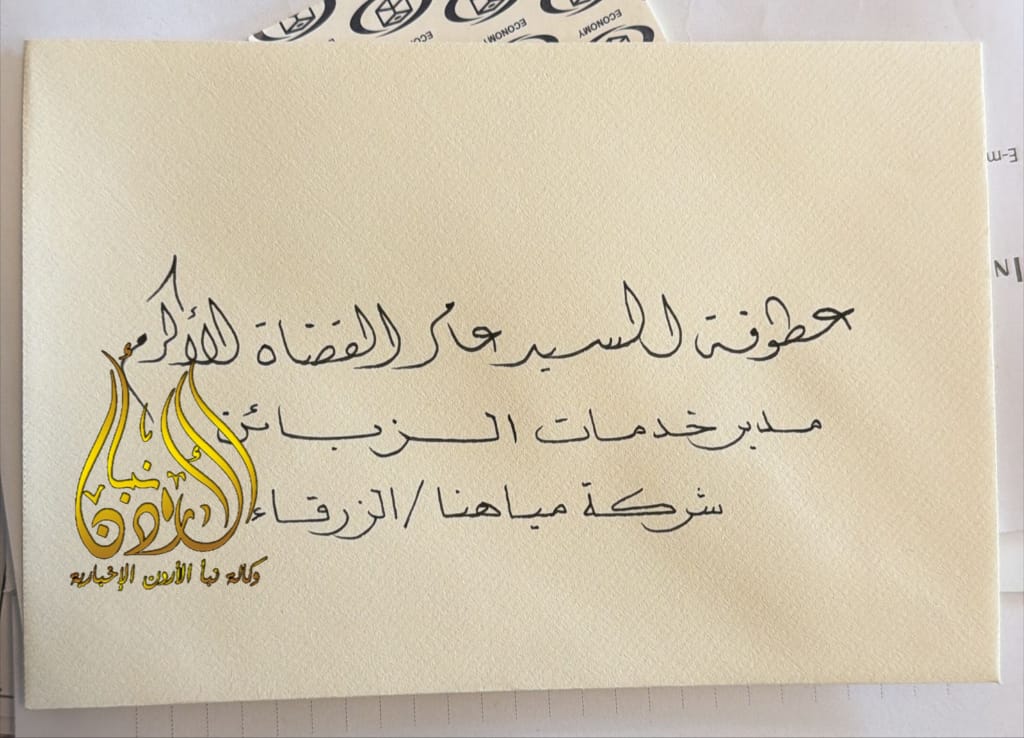 ECONOMY
ECONOMY
ECONOMY
E-m
IN
عطوفة السيد عامر القضاة الأكرم
مدير خدمات الزبائن
شركة مياهنا / الزرقاء
نبأ
الأردن
وكالة نبأ الأردن الإخبارية